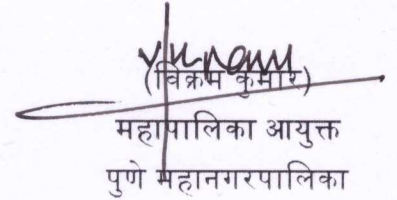 (विक्रम कुमार)
महापालिका आयुक्त
पुणे महानगरपालिका